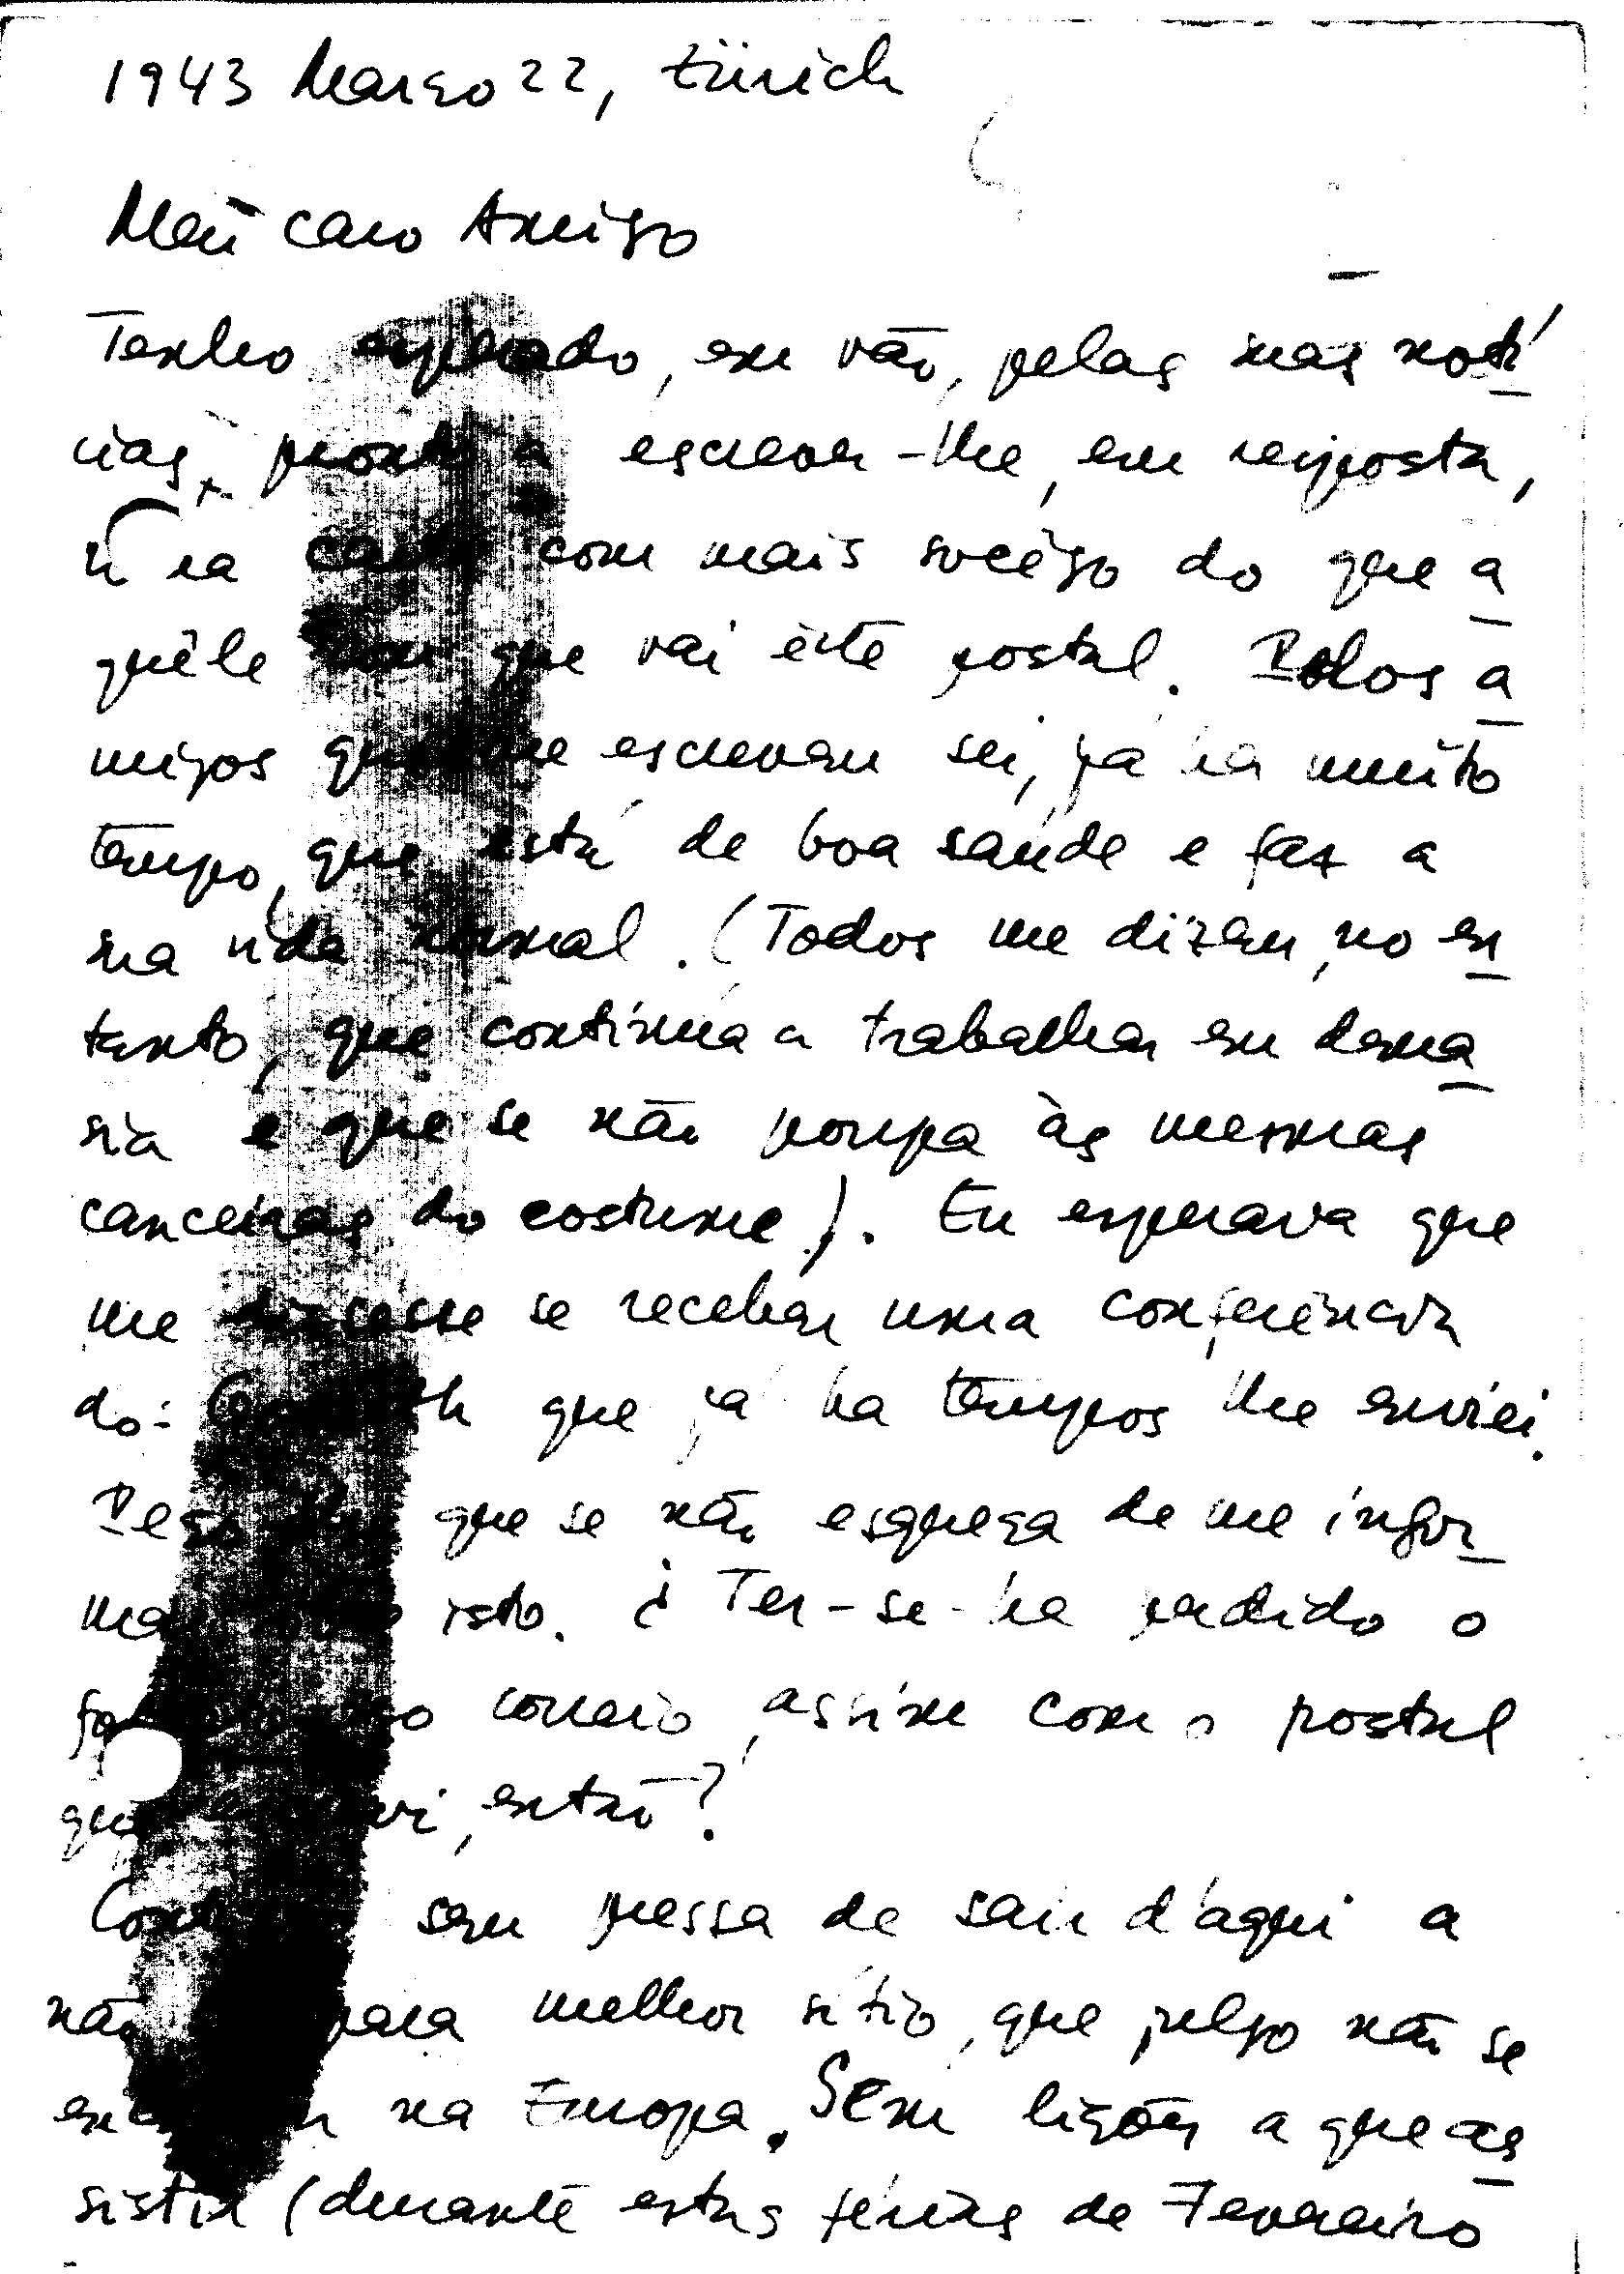 1943 Março 22, Zürich
Meu caro Amigo
Tenho esperado, em vão, pelas suas notí
cias, pronto a escrever-lhe, em resposta,
ũa carta com mais socêgo do que a
quêle com que vai êste postal. Pelos a
migos que me escrevem sei, já ha muito
tempo, que está de boa saúde e faz a
sua vida normal. (Todos me dizem, no en
tanto, que continua a trabalhar em dema
sia e que se não poupa às mesmas
canceiras do costume). Eu esperava que
me dissesse se recebeu uma conferência
do: que já ha tempos lhe enviei.
Peço-lhe que se não esqueça de me infor
mar isto. ¿ Ter-se-ha perdido o
correio, assim como o postal
que então?
sem pressa de sair d'aqui a
não para melhor sítio, que julgo não se
na Europa. Sem lições a que as
sistir (durante estas férias de Fevereiro